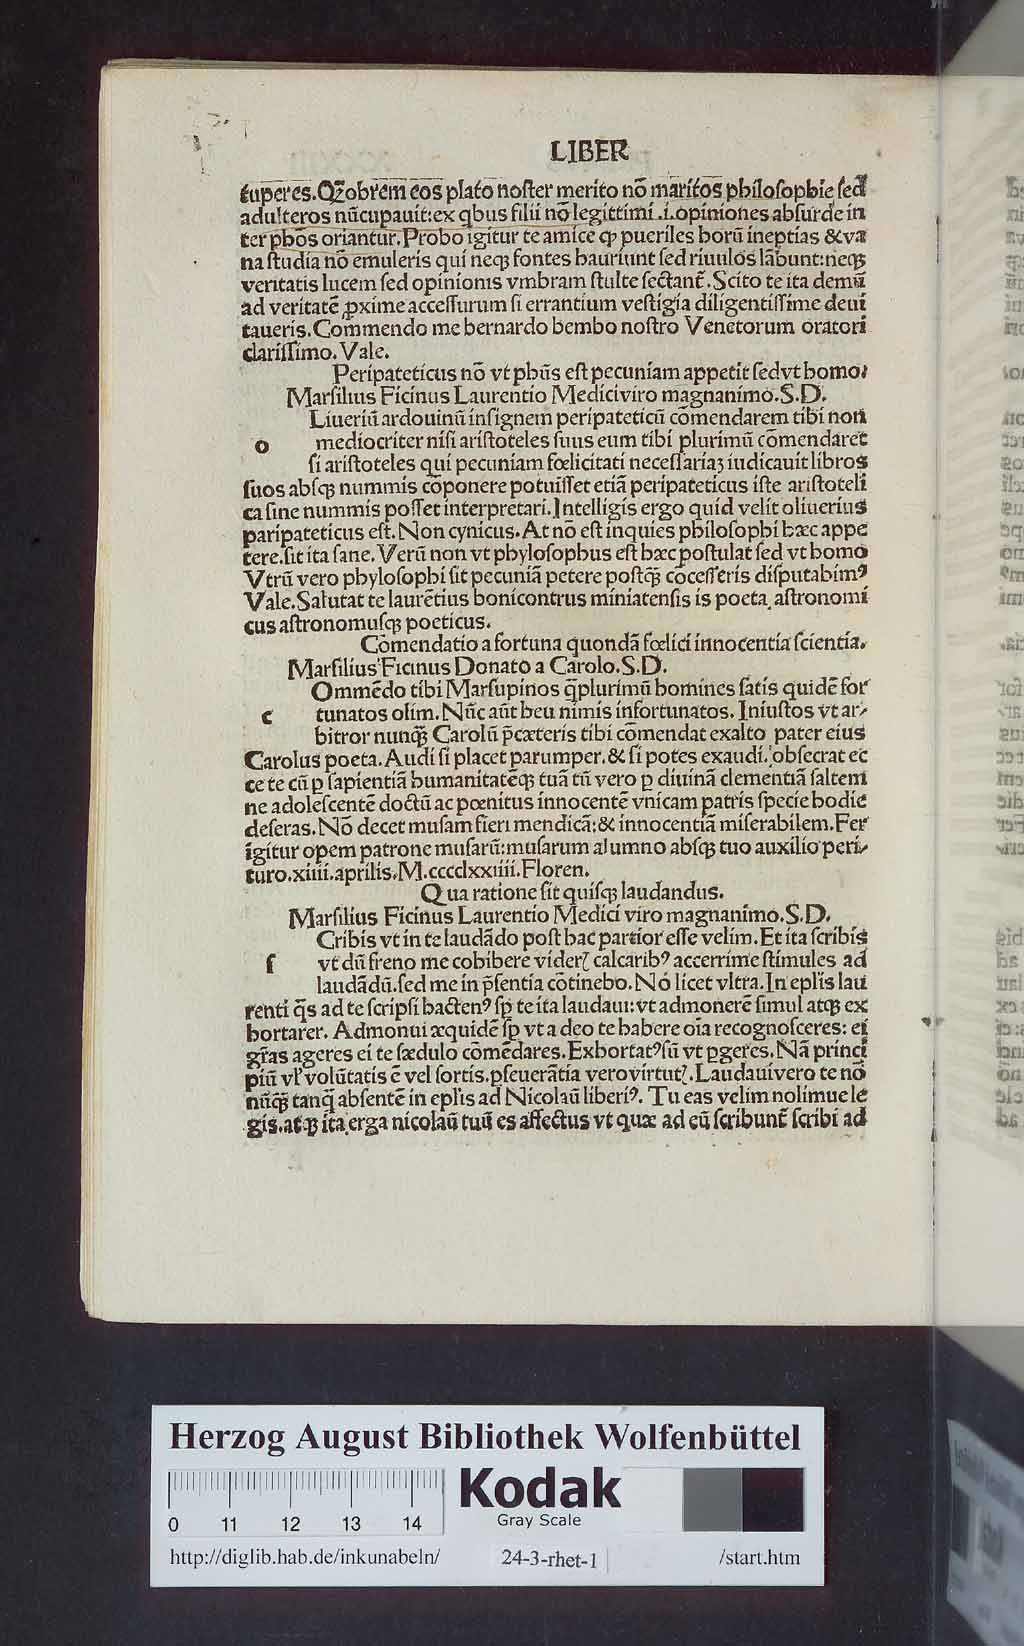 LIBER
tuperes.Qꝫobrem eos plato noſter merito nō maritos philoſophie ſed
adulteros nūcupauit:ex qbus filii nō legittimi .i.opiniones abſurde in
ter phōs oriantur.Probo igitur te amice ꝙ pueriles horū ineptias &va
na ſtudia nō emuleris qui neqꝫ fontes hauriunt ſed riuulos lābunt:neqꝫ
veritatis lucem ſed opinionis vmbram ſtulte ſectant̄.Scito te ita demū
ad veritatē ꝓxime acceſſurum ſi errantium veſtigia diligentiſſime deui
taueris.Commendo me bernardo bembo noſtro Venetorum oratori
clariſſimo.Vale.
Peripateticus nō vt phūs eſt pecuniam appetit ſedvt homo.
Marſilius Ficinus Laurentio Mediciviro magnanimo.S.D.
Liueriū ardouinū inſignem peripateticū cōmendarem tibi non
o mediocriter niſi ariſtoteles ſuus eum tibi plurimū cōmendaret
ſi ariſtoteles qui pecuniam fœlicitati neceſſariaꝫ iudicauit libros
ſuos abſqꝫ nummis cōponere potuiſſet etiā peripateticus iſte ariſtoteli
ca ſine nummis poſſet interpretari.Intelligis ergo quid velit oliuerius
paripateticus eſt.Non cynicus.At nō eſt inquies philoſophi hæc appe
tere.ſit ita ſane.Verū non vt phyloſophus eſt hæc poſtulat ſed vt homo
Vtrū vero phyloſophi ſit pecuniā petere poſtqꝫ cōceſſeris diſputabimꝰ
Vale.Salutat te laurētius bonicontrus miniatenſis is poeta aſtronomi
cus aſtronomuſqꝫ poeticus.
Cōmendatio a fortuna quondā fœlici innocentia ſcientia.
Marſilius Ficinus Donato a Carolo.S.D.
Ommēdo tibi Marſupinos q̄plurimū homines ſatis quidē for
c tunatos olim.Nūc aūt heu nimis infortunatos.Iniuſtos vt ar-
bitror nunqꝫ Carolū p̄cæteris tibi cōmendat exalto pater eius
Carolus poeta.Audi ſi placet parumper.& ſi potes exaudi.obſecrat ec
ce te cū ꝑ ſapientiā humanitatēqꝫ tuā tū vero ꝑ diuinā clementiā ſaltem
ne adoleſcentē doctū ac pœnitus innocentē vnicam patris ſpecie hodie
deſeras.Nō decet muſam fieri mendicā:& innocentiā miſerabilem.Fer
igitur opem patrone muſarū:muſarum alumno abſqꝫ tuo auxilio peri-
turo.xiiii.aprilis.M.ccccdxxiiii.Floren.
Qua ratione ſit quiſqꝫ laudandus.
Marſilius Ficinus Laurentio Medici viro magnanimo.S.D.
Cribis vt in te laudādo poſt hac partior eſſe velim.Et ita ſcribis
ſ vt dū freno me cohibere viderꝭ calcaribꝰ accerrime ſtimules ad
laudādū.ſed me in p̄ſentia cōtinebo.Nō licet vltra.In eplis lau
renti q̄s ad te ſcripſi hactenꝰ ſꝑ te ita laudaui:vt admonerē ſimul atqꝫ ex
hortarer. Admonui æquidē ſꝑ vt a deo te habere oīa recognoſceres: ei
gr̄as ageres ei te ſædulo cōmēdares.Exhortatꝰſū vt ꝑgeres.Nā princi
piū vl' volūtatis ē vel ſortis.ꝑſeuerātia verovirtutꝭ.Laudauivero te nō
nūqꝫ tanq̄ abſentē in eplis ad Nicolaū liberiꝰ. Tu eas velim nolimue le
gis.atqꝫ ita erga nicolaū tuū es affectus vt quæ ad eū ſcribunt̄ ſcribi ad
Herzog August Bibliothek Wolfenbüttel
Kodak
Gray Scale
0 11 12 13 14
http://diglib.hab.de/inkunabeln/ 24-3-rhet-1 /start.htm